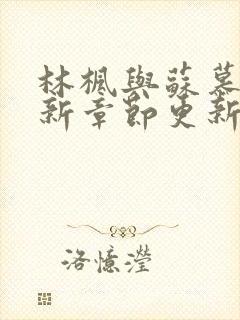 林楓與蘇慕
新章節更新
洛憶瀅